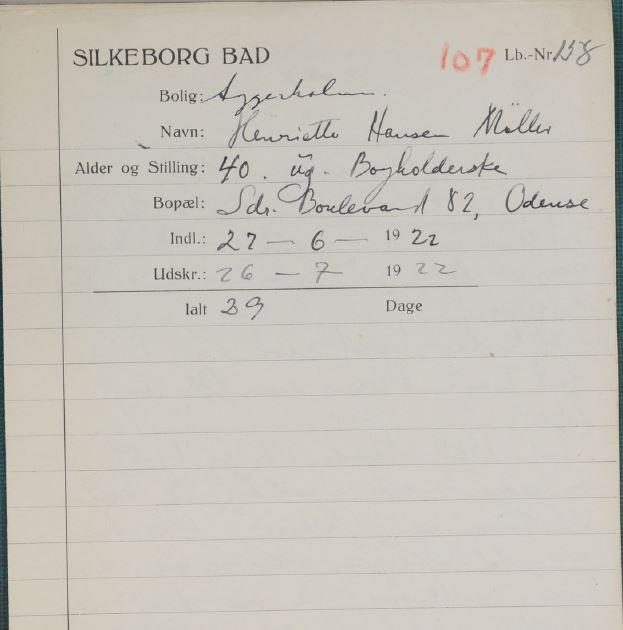 SILKEBORG BAD 107 Lb.-Nr. 158
Bolig: Aggerholm.
Navn: Henriette Hansen Møller
Alder og Stilling: 40. ug. Bogholderske
Bopæl: Sdr. Boulevard 82, Odense
Indl.: 27 — 6 — 1922
Udskr.: 26 — 7 1922
Ialt 29 Dage